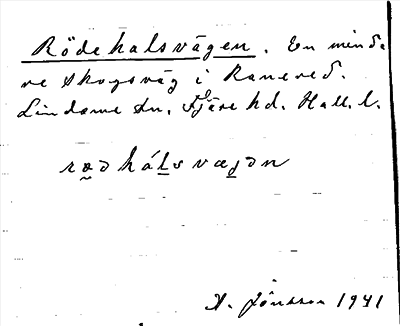 Rödehalsvägen. En mind-
re skogsväg i Ranered.
Lindome sn. Fjäre hd. Hall. l.
rød hálsvæjən
A. Jönsson 1941